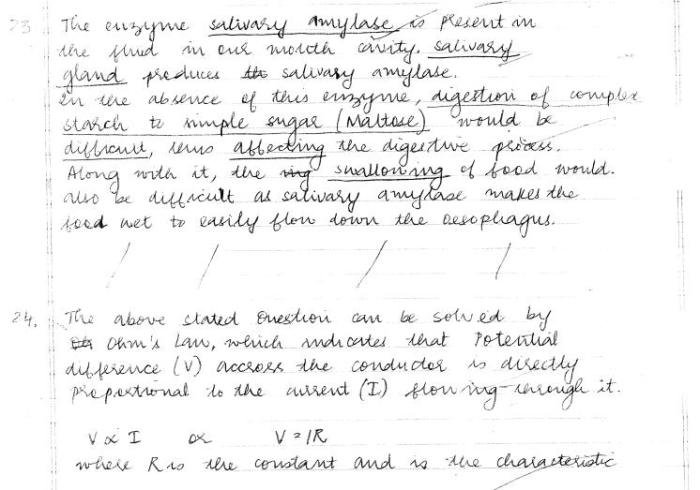 23 The enzyme salivary amylase is present in
the fluid in our mouth cavity. salivary
gland produces salivary amylase.
In the absence of this enzyme, digestion of complex
starch to simple sugar (Maltose) would be
difficult, thus affecting the digestive process.
Along with it, the swallowing of food would.
also be difficult as salivary amylase makes the
food wet to easily flow down the oesophagus.
24. The above stated Question can be solved by
Ohm's Law, which indicates that Potential
difference (V) accross the conductor is directly
proportional to the current (I) flowing through it.
V ∝ I or V = IR
where R is the constant and is the characteristic